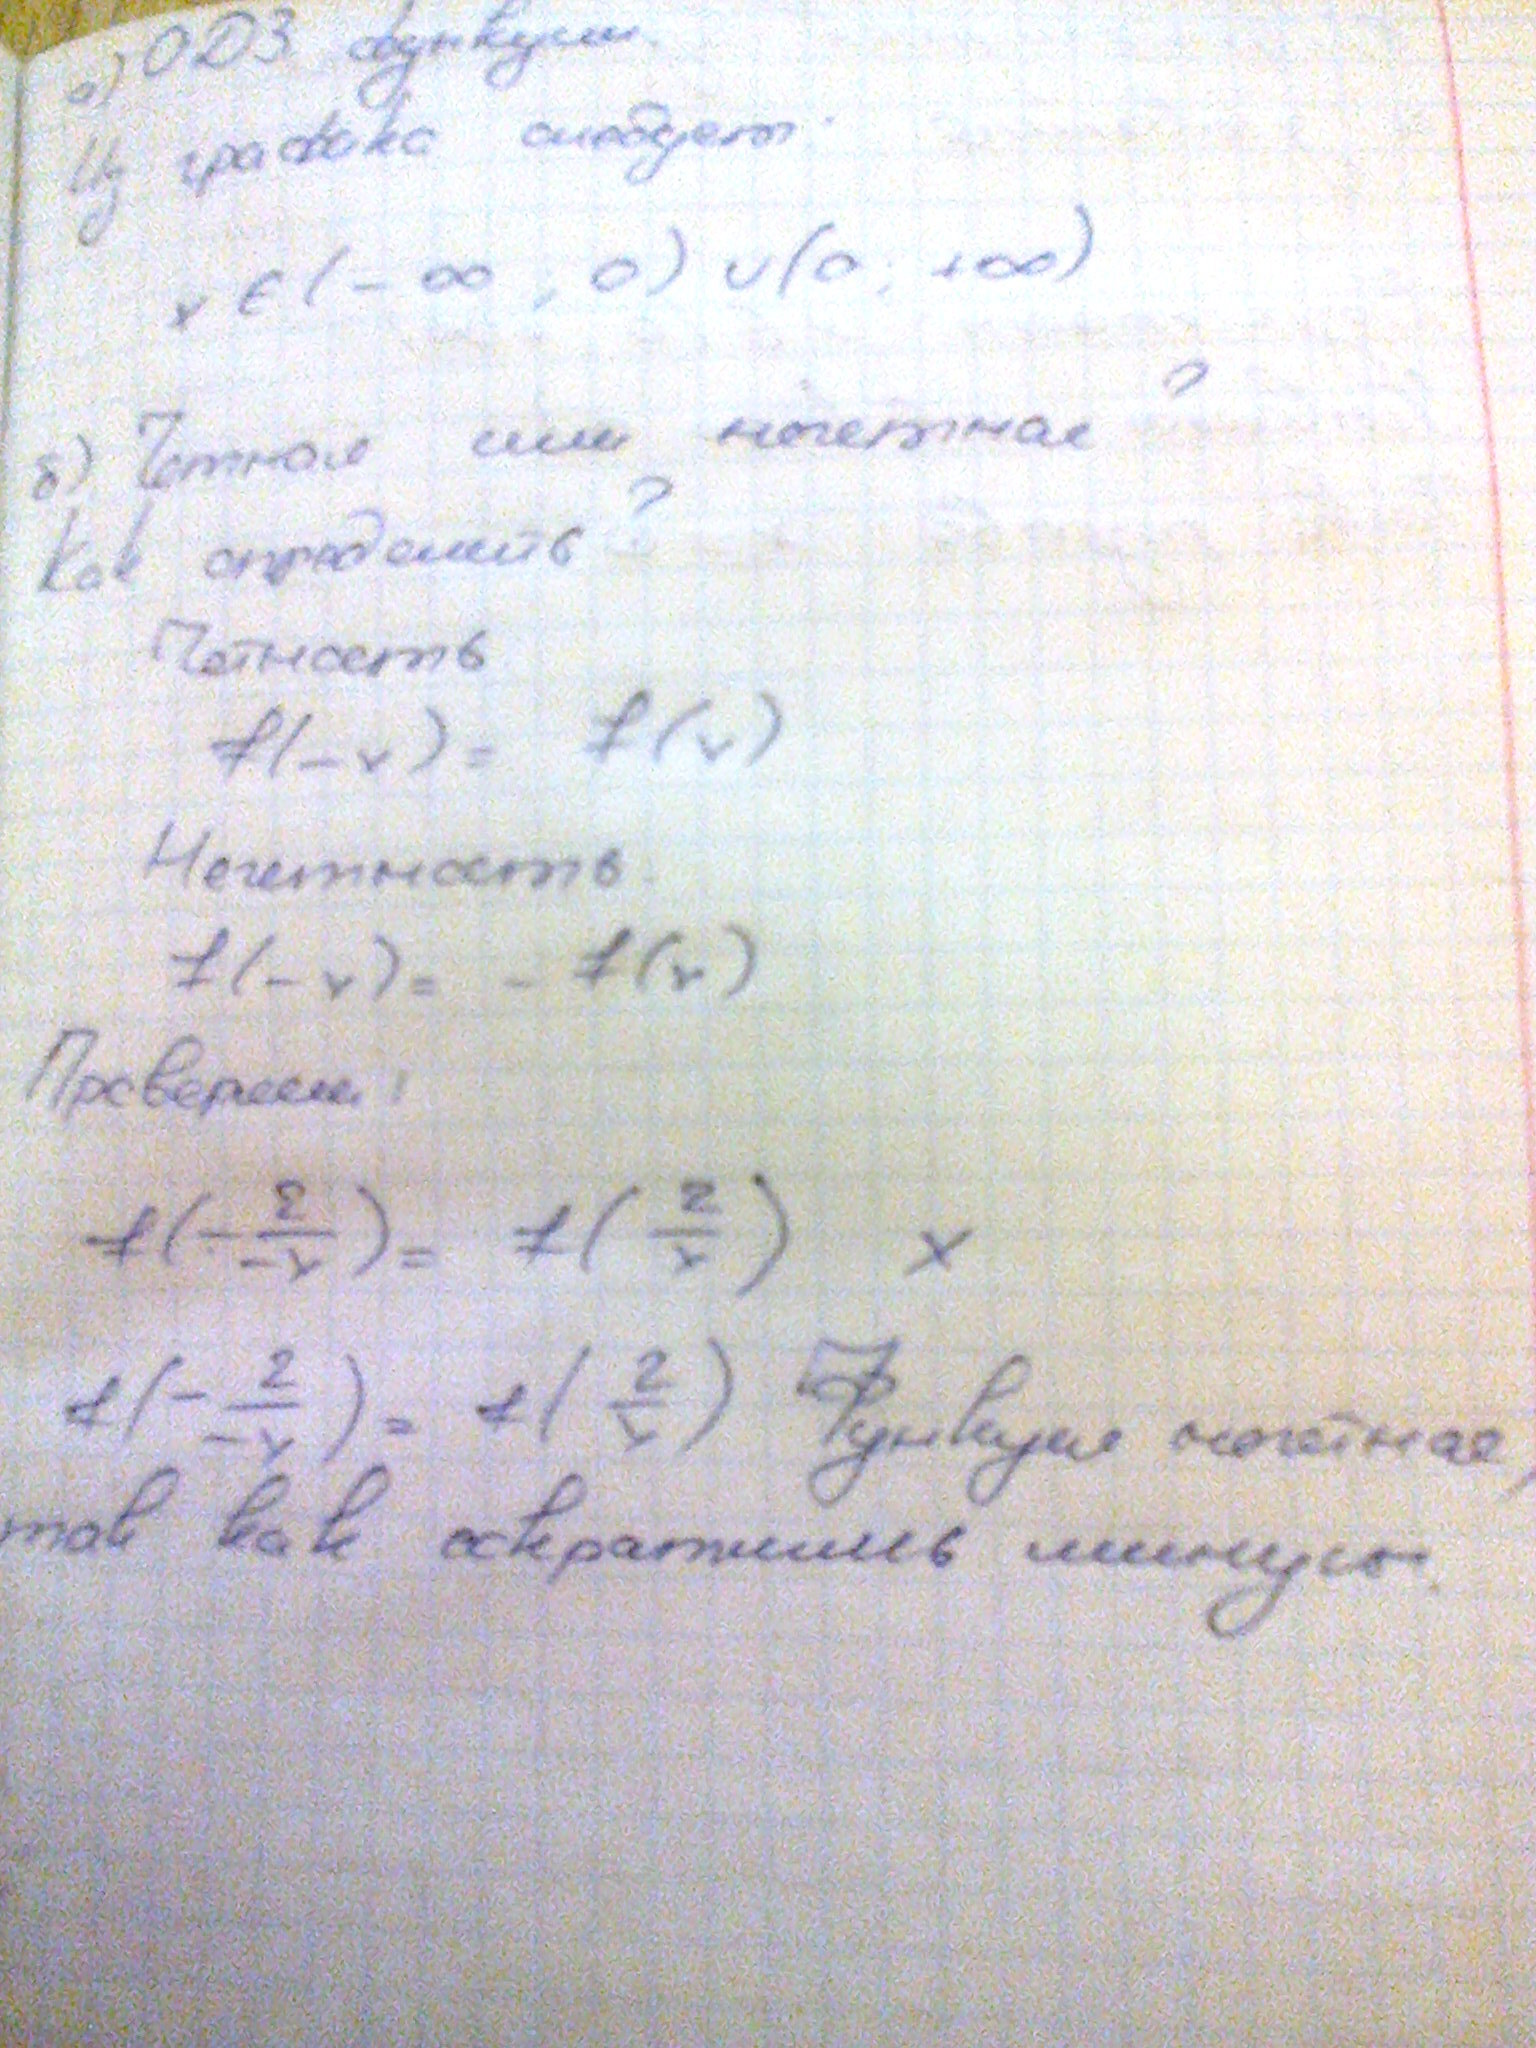 а) ОДЗ функции.
Из графика следует:
x ∈ (-∞; 0) ∪ (0; +∞)
б) Четная или нечетная?
Как определить?
Четность
f(-x) = f(x)
Нечетность.
f(-x) = - f(x)
Проверим:
f(-2/-x) = f(2/x) x
f(-2/-x) = f(2/x) Функция нечетная,
так как сократились минусы.